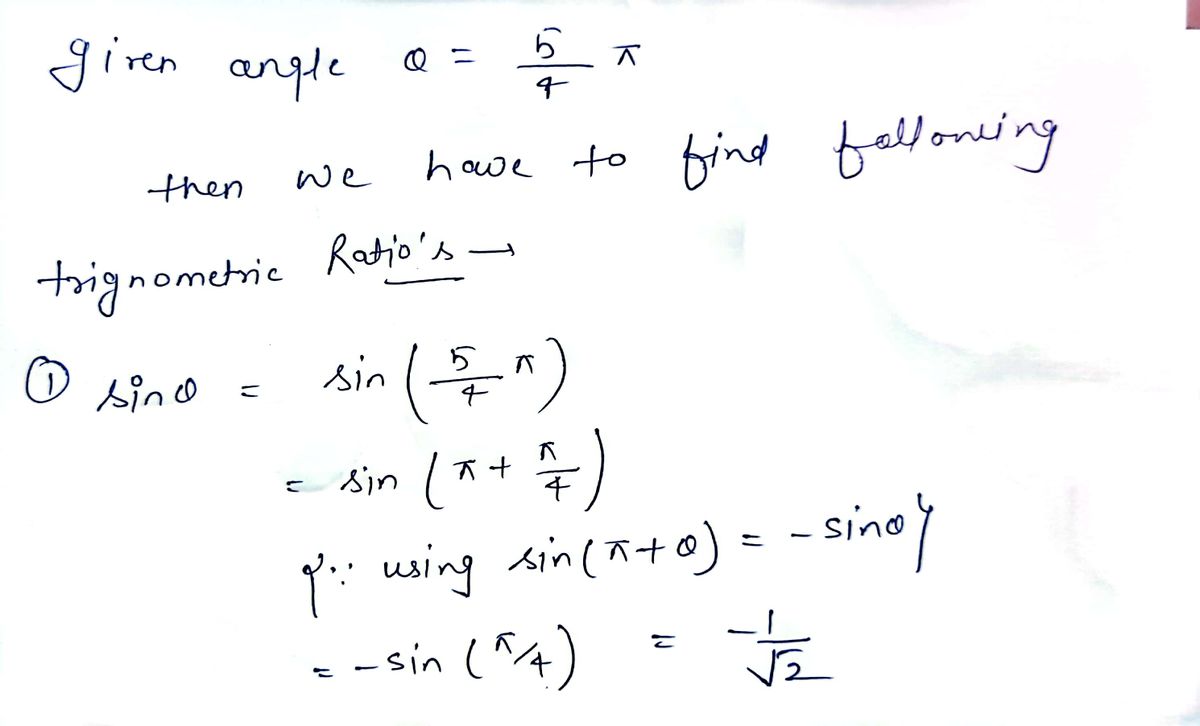 given angle θ = 5/4 π
then we have to find following
trignometric Ratio's →
① sinθ = sin (5/4 π)
= sin (π + π/4)
{∵ using sin(π+θ) = - sinθ}
= - sin (π/4) = -1/√2